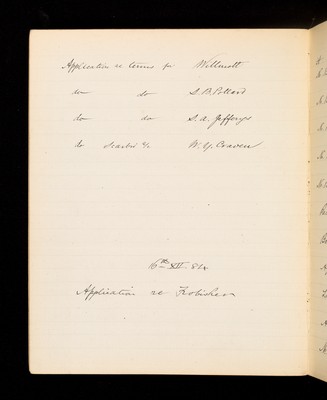 Application re terms for Willmott
do do S. B. Pollard
do do S. A. Jefferys
do W. Y. Craven
6th XII. 84.
Application re Frobisher